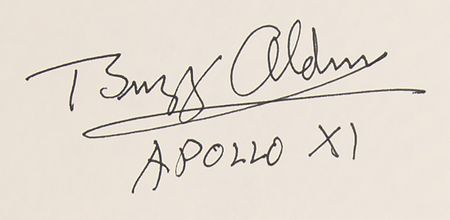 Buzz Aldrin
APOLLO XI